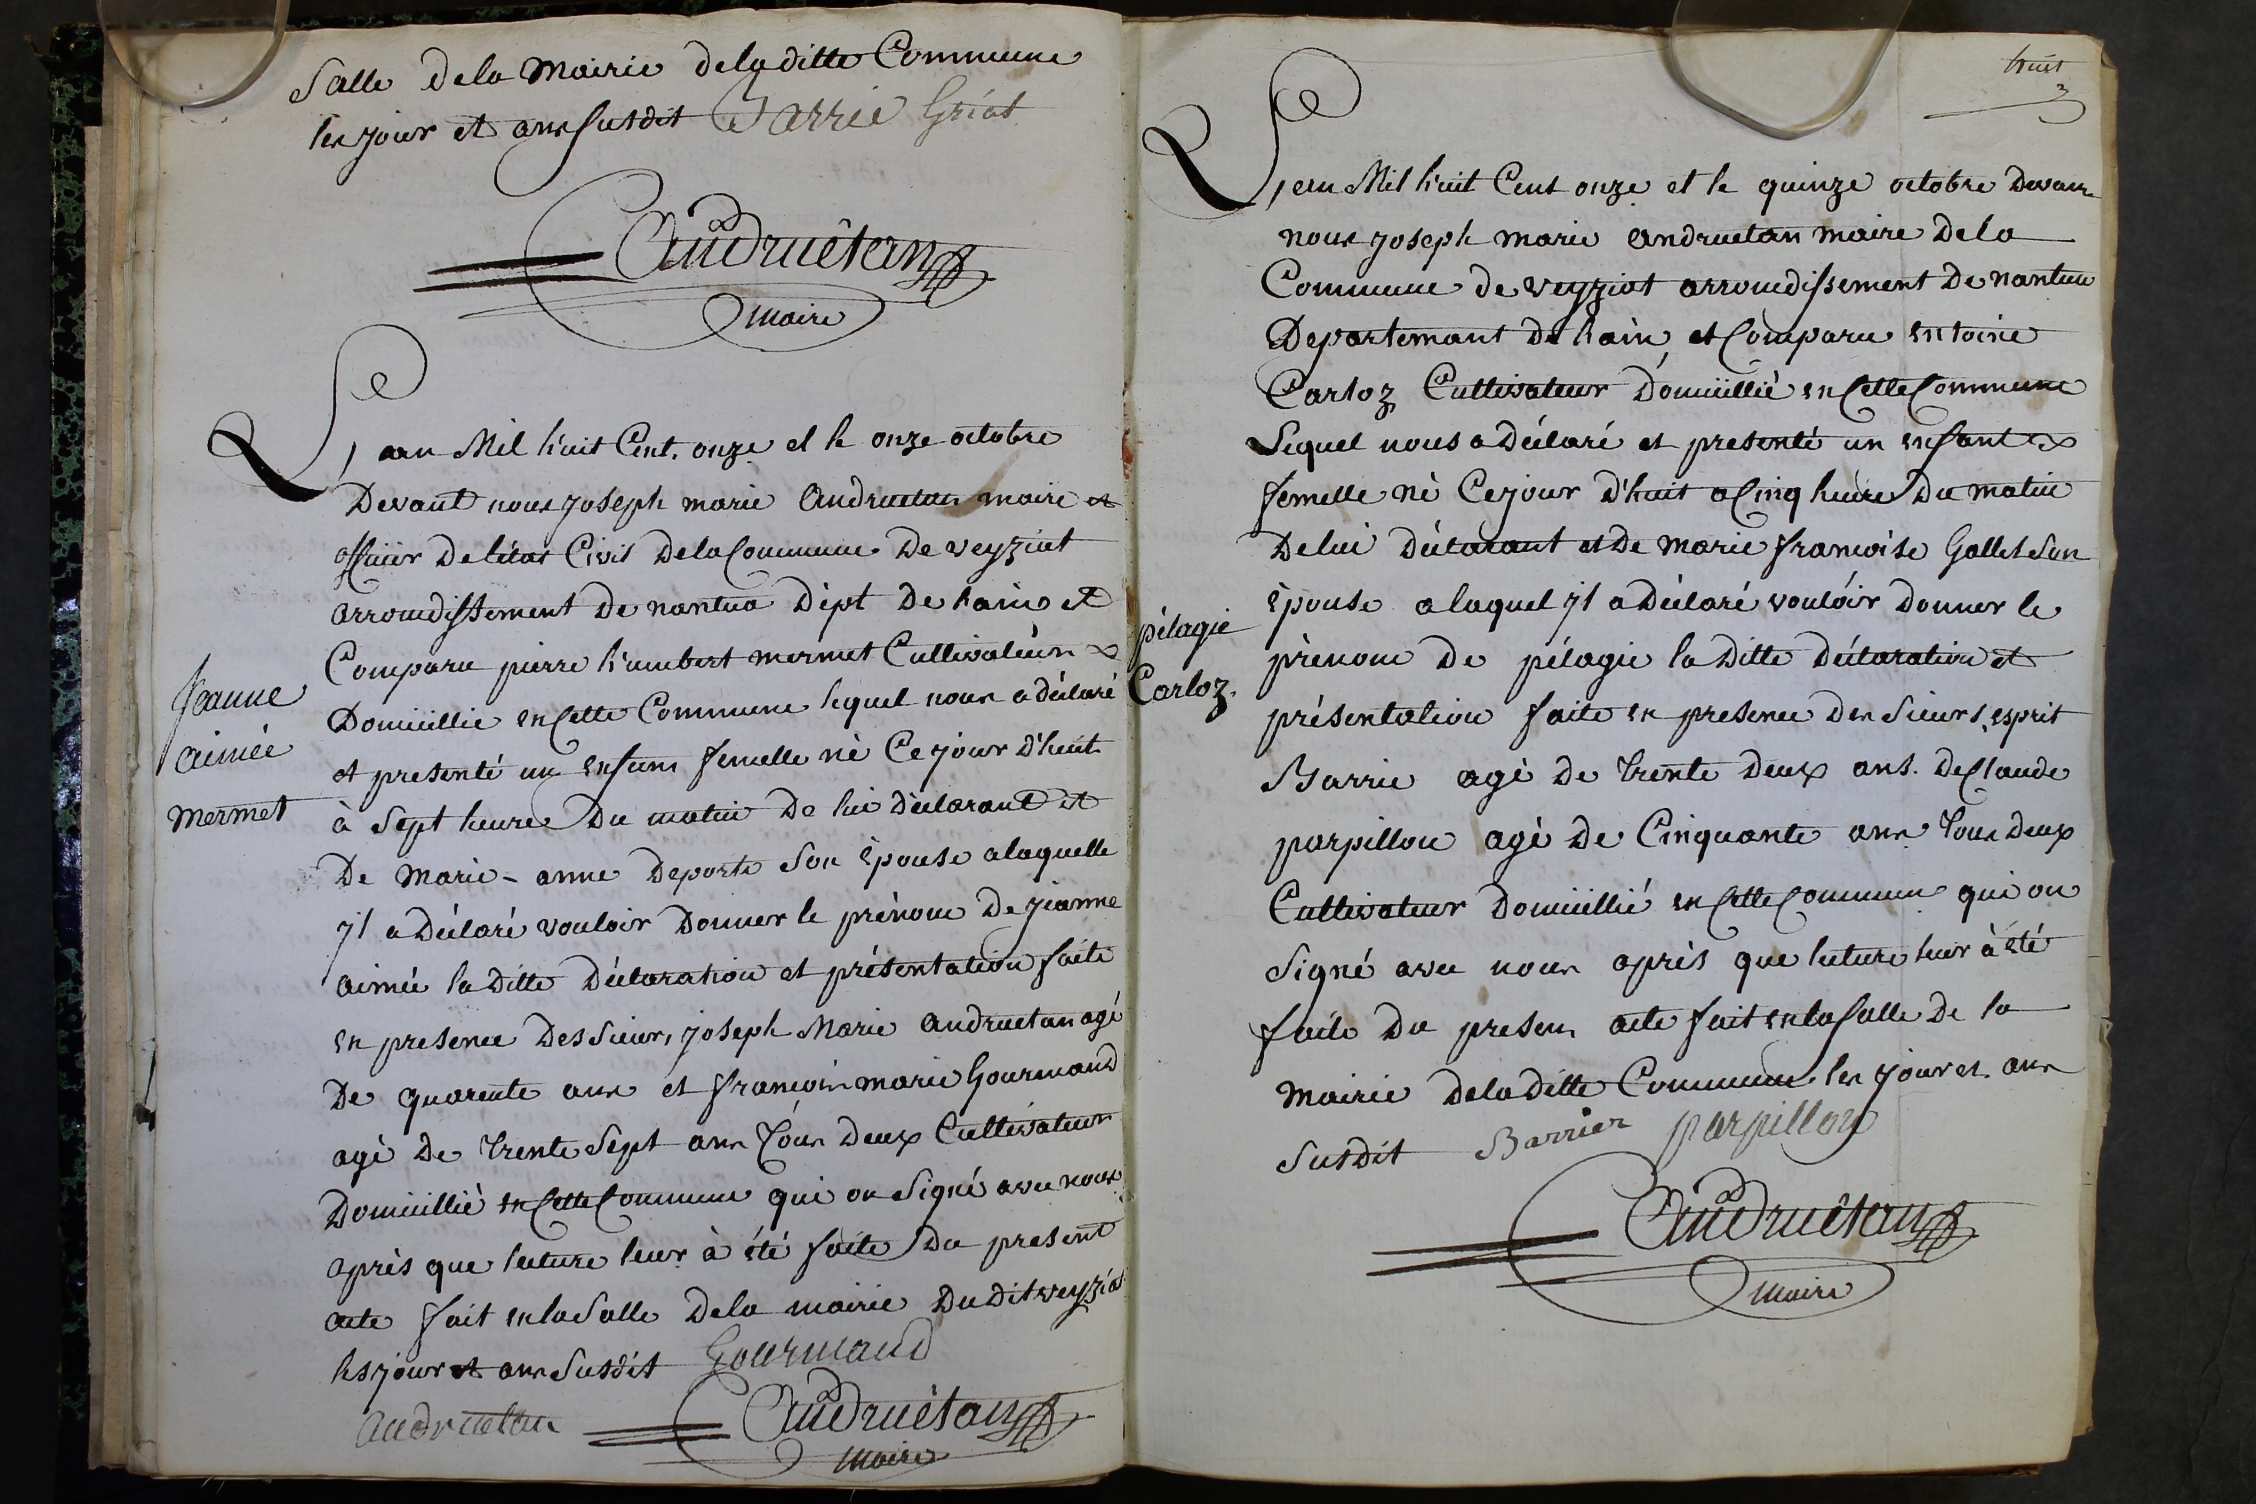 Salle De la Mairie De la ditte Commune
les jour et ans susdit Barrie Griat
andruêtan
maire
L'ean Mil huit Cent onze et le onze octobre
Devant nous joseph marie Andruetan maire et
officier De l'état Civil De la Commune De veyziat
arrondissement De nantua Dépt De l'ain et
Comparu pierre humbert mermet Cultivateur
Domicillié en Cette Commune lequel nous a déclaré
et presenté un enfant femelle né Ce jour D'huit
à Sept heure Du matin De lui Déclarant et
De Marie-anne Deporte Son Épouse a laquelle
jl a Déclaré vouloir Donner le prénom De jeanne
aimée la Ditte Déclaration et présentation faite
en presence Des Sieurs joseph Marie andruetan agé
De quarente ans et françois marie Gourmand
agé De trente Sept ans tous Deux Cultivateur
Domicillié en Cette Commune qui on Signé avec nous
après que lecture leur à été faite Du present
acte fait en la Salle De la mairie Du Dit veyziat
les jour et ans Susdit Gourmand
andruetan andruêtan
maire
Jeanne
aimée
mermet
huit
L'ean Mil huit Cent onze et le quinze octobre Devan
nous joseph marie andruetan maire De la
Commune de veyziat arrondissement De nantua
Departemant De l'ain, et Comparu entoine
Carloz Cultivateur Domicillié en Cette Commune
Lequel nous a Déclaré et presenté un enfant
femelle né Ce jour D'huit a Cinq heure Du matin
De lui Déclarant et De marie françoise Gallet Son
Épouse a laquel jl a Déclaré vouloir Donner le
prénom De pélagie la Ditte Déclaration et
présentation faite en presence Des Sieurs esprit
Barrie agé De trente Deux ans. De Claude
parpillon agé De Cinquante ans tous Deux
Cultivateur Domicillié en Cette Commune qui on
Signé avec nous après que lecture leur à été
faite Du presen acte fait en la Salle De la
Mairie De la Ditte Commune les jour et ans
Susdit Barrier parpillon
andruêtan
maire
pélagie
Carloz.